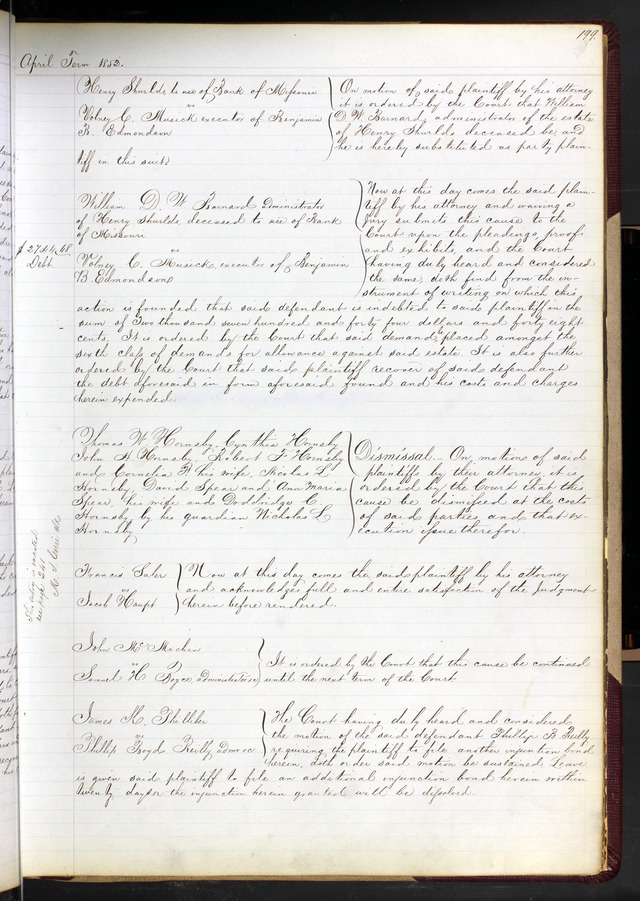 199.
April Term 1852.
Henry Shurlds to use of Bank of Missouri
vs
Volney C. Musick executor of Benjamin
B. Edmondson
On motion of said plaintiff by his attorney
it is ordered by the Court that William
D. W. Barnard, administrator of the estate
of Henry Shurlds deceased be, and
he is hereby substituted as party plain-
tiff in this suit.
William D. W. Barnard administrator
of Henry Shurlds, deceased to use of Bank
of Missouri
vs
Volney C. Musick, executor of Benjamin
B Edmondson
$ 2744.48
Debt
Now at this day comes the said plain-
tiff by his attorney and waiving a
Jury submits this cause to the
Court upon the pleadings, proof
and exhibits, and the Court
having duly heard and considered
the same, doth find from the in-
strument of writing on which this
action is founded that said defendant is indebted to said plaintiff in the
sum of Two thousand seven hundred and forty four dollars and forty eight
cents. It is ordered by the Court that said demand, placed amongst the
sixth class of demands for allowance against said estate. It is also further
ordered by the Court that said plaintiff recover of said defendant
the debt aforesaid in form aforesaid found and his costs and charges
herein expended.
Thomas W Hornsby, Cynthia Hornsby
John H Hornsby, Robert F Hornsby
and Cornelia F his wife, Nicolas L
Hornsby David Spear and Ann Maria
Spear his wife and Doddridge C.
Hornsby by his guardian Nicholas L
Hornsby
Dismissal. On motion of said
plaintiffs by their attorney it is
ordered by the Court that this
cause be dismissed at the costs
of said parties and that ex-
ecution issue therefor.
Francis Saler
vs
Jacob Haupt
Now at this day comes the said plaintiff by his attorney
and acknowledges full and entire satisfaction of the Judgment
herein before rendered.
John Mc Mechan
vs
Samuel H. Boyce, administrator
It is ordered by the Court that this cause be continued
until the next term of the Court.
James H.
vs
Phillip Boyd Reilly, admr &c
The Court having duly heard and considered
the motion of the said defendant Phillip B Reilly
requiring the plaintiff to file another injunction bond
herein, doth order said motion be sustained. Leave
is given said plaintiff to file an additional injunction bond herein within
twenty days or the injunction herein granted will be dissolved.